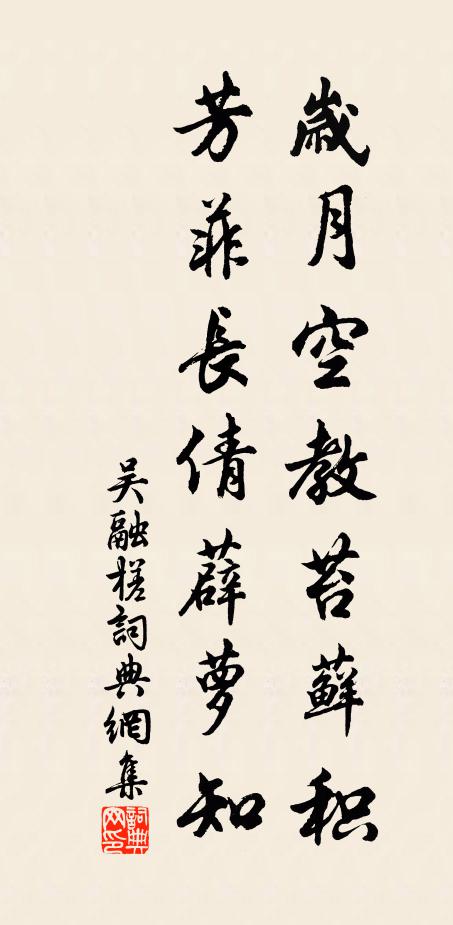 歲月空教苔蘚积
芳菲長倩薜萝知
吴融槎詞典網集
詞典
网印